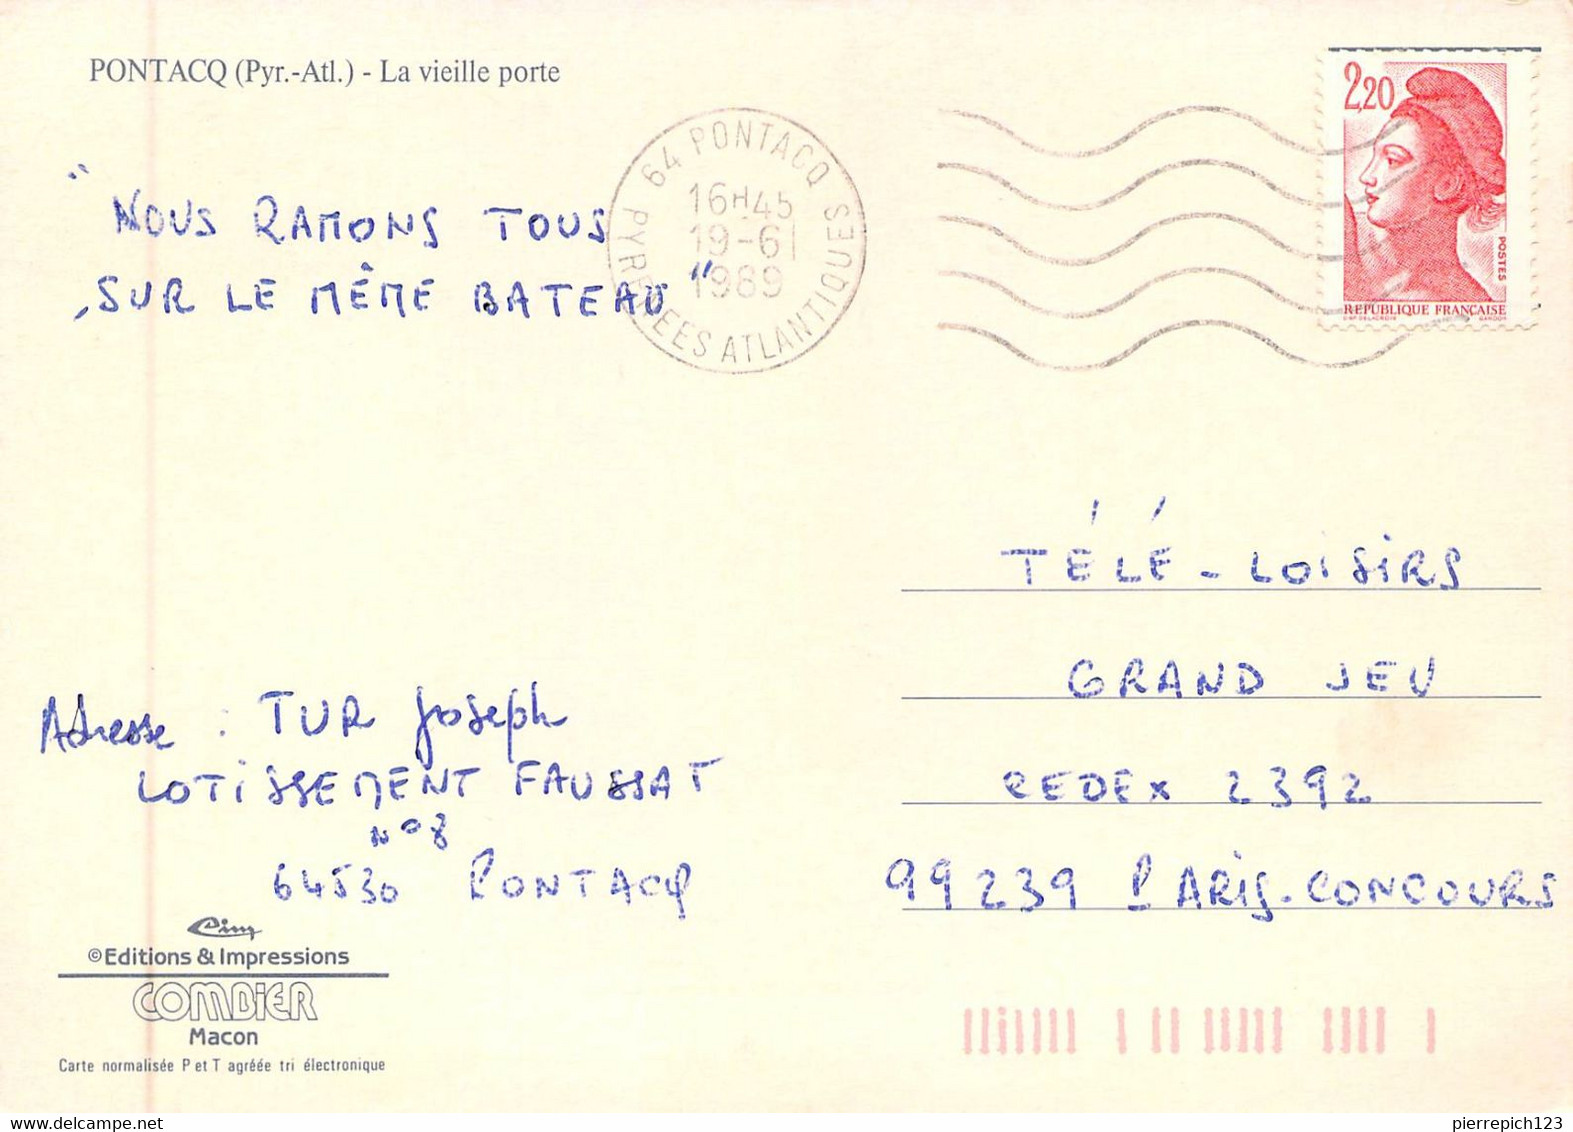 PONTACQ (Pyr.-Atl.) - La vieille porte
64 PONTACQ
16H45
19-6
1989
PYRENEES ATLANTIQUES
2,20
POSTES
REPUBLIQUE FRANÇAISE
D'AP. DELACROIX GANDON
"NOUS RAMONS TOUS
SUR LE MÊME BATEAU"
TÉLÉ-LOISIRS
GRAND JEU
CEDEX 2392
99239 PARIS-CONCOURS
Adresse : TUR Joseph
LOTISSEMENT FAUSSAT
N°8
64530 PONTACQ
Cim
©Editions & Impressions
COMBIER
Macon
Carte normalisée P et T agréée tri électronique
pierrepich123